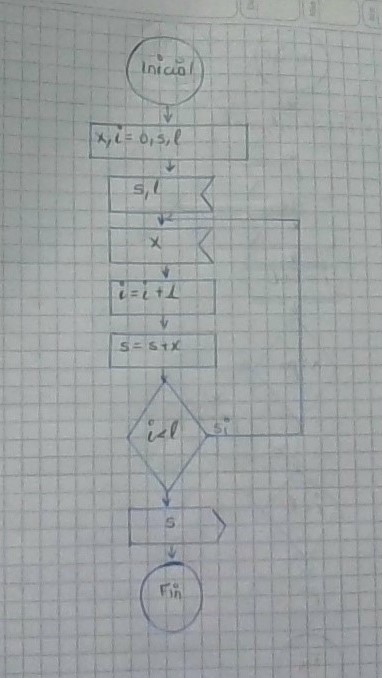 Inicial
x, i = 0, s, l
s, l
x
i = i + 1
s = s + x
i < l
si
s
Fin